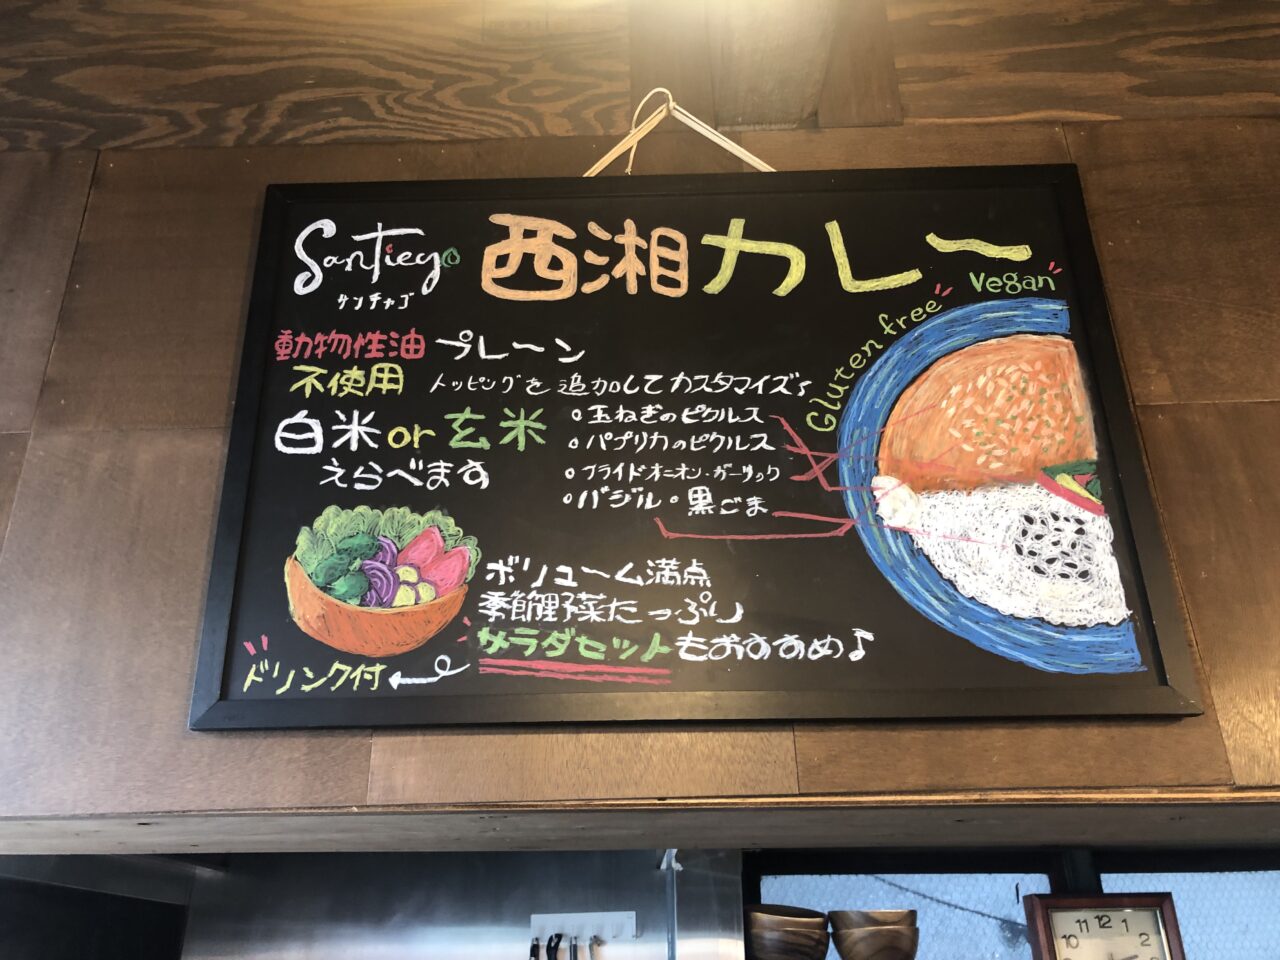 Santiego
サンチャゴ
西湘カレー
Vegan
Gluten free
動物性油
不使用
プレーン
トッピングを追加してカスタマイズ♪
白米or玄米
えらべます
○玉ねぎのピクルス
○パプリカのピクルス
○フライドオニオン・ガーリック
○バジル・黒ごま
ボリューム満点
季節野菜たっぷり
サラダセットもおすすめ♪
ドリンク付
11 12 1
10 2
9 3